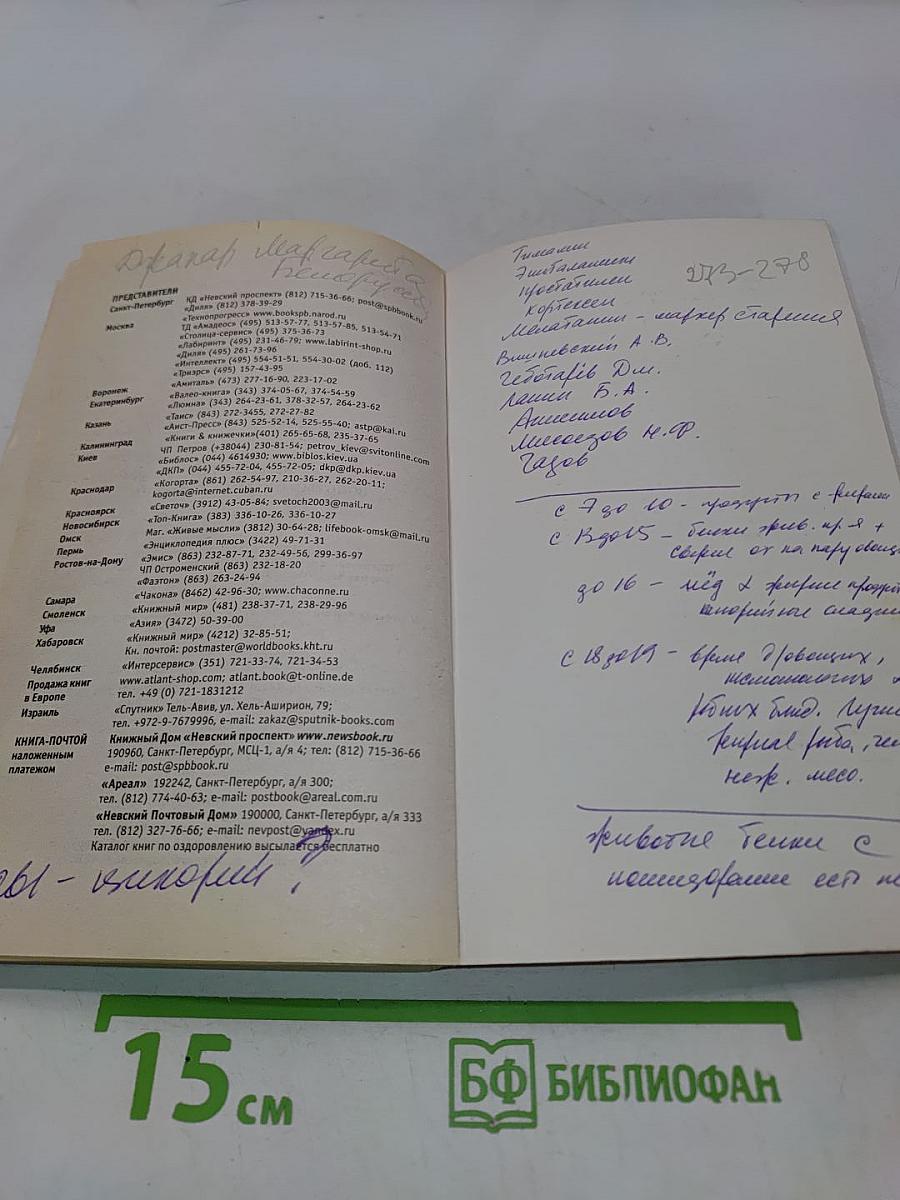 Джапар Маргарита
ПРЕДСТАВИТЕЛИ
Санкт-Петербург КД «Невский проспект» (812) 715-36-66; post@spbbook.ru
«Диля» (812) 378-39-29
«Технопрогресс» www.bookspb.narod.ru
Москва ТД «Амадеос» (495) 513-57-77, 513-57-85, 513-54-71
«Столица-сервис» (495) 375-36-73
«Лабиринт» (495) 231-46-79; www.labirint-shop.ru
«Диля» (495) 261-73-96
«Интеллект» (495) 554-51-51, 554-30-02 (доб. 112)
«Триэрс» (495) 157-43-95
Воронеж «Амиталь» (473) 277-16-90, 223-17-02
Екатеринбург «Валео-книга» (343) 374-05-67, 374-54-59
«Люмна» (343) 264-23-61, 378-32-57, 264-23-62
Казань «Таис» (843) 272-3455, 272-27-82
«Аист-Пресс» (843) 525-52-14, 525-55-40; astp@kai.ru
Калининград «Книги & книжечки»(401) 265-65-68, 235-37-65
Киев ЧП Петров (+38044) 230-81-54; petrov_kiev@svitonline.com
«Библос» (044) 4614930; www.biblos.kiev.ua
«ДКП» (044) 455-72-04, 455-72-05; dkp@dkp.kiev.ua
Краснодар «Когорта» (861) 262-54-97, 210-36-27, 262-20-11;
kogorta@internet.cuban.ru
Красноярск «Светоч» (3912) 43-05-84; svetoch2003@mail.ru
Новосибирск «Топ-Книга» (383) 336-10-26, 336-10-27
Омск Маг. «Живые мысли» (3812) 30-64-28; lifebook-omsk@mail.ru
Пермь «Энциклопедия плюс» (3422) 49-71-31
Ростов-на-Дону «Эмис» (863) 232-87-71, 232-49-56, 299-36-97
ЧП Остроменский (863) 232-18-20
«Фаэтон» (863) 263-24-94
Самара «Чакона» (8462) 42-96-30; www.chaconne.ru
Смоленск «Книжный мир» (481) 238-37-71, 238-29-96
Уфа «Азия» (3472) 50-39-00
Хабаровск «Книжный мир» (4212) 32-85-51;
Кн. почтой: postmaster@worldbooks.kht.ru
Челябинск «Интерсервис» (351) 721-33-74, 721-34-53
Продажа книг www.atlant-shop.com; atlant.book@t-online.de
в Европе тел. +49 (0) 721-1831212
Израиль «Спутник» Тель-Авив, ул. Хель-Аширион, 79;
тел. +972-9-7679996, e-mail: zakaz@sputnik-books.com
КНИГА-ПОЧТОЙ Книжный Дом «Невский проспект» www.newsbook.ru
наложенным 190960, Санкт-Петербург, МСЦ-1, а/я 4; тел: (812) 715-36-66
платежом e-mail: post@spbbook.ru
«Ареал» 192242, Санкт-Петербург, а/я 300;
тел. (812) 774-40-63; e-mail: postbook@areal.com.ru
«Невский Почтовый Дом» 190000, Санкт-Петербург, а/я 333
тел. (812) 327-76-66; e-mail: nevpost@yandex.ru
Каталог книг по оздоровлению высылается бесплатно
- цикорий ?
Тималин
Эпиталамин
простатилен
кортексин
273-278
Мелатонин - маркер старения
Вишневский А. В.
Чеботарёв Д.м.
Лапин Б. А.
Анисимов
Мясоедов Н. Ф.
с 7 до 10 - продукты с
с 13 до 15 - белки жив. пр-я +
на пару
до 16 - мёд
с 18 до 19 -
блюд.
рыба,
неж. мясо.
животные белки с
помидорами есть
15 см
БФ БИБЛИОФАН